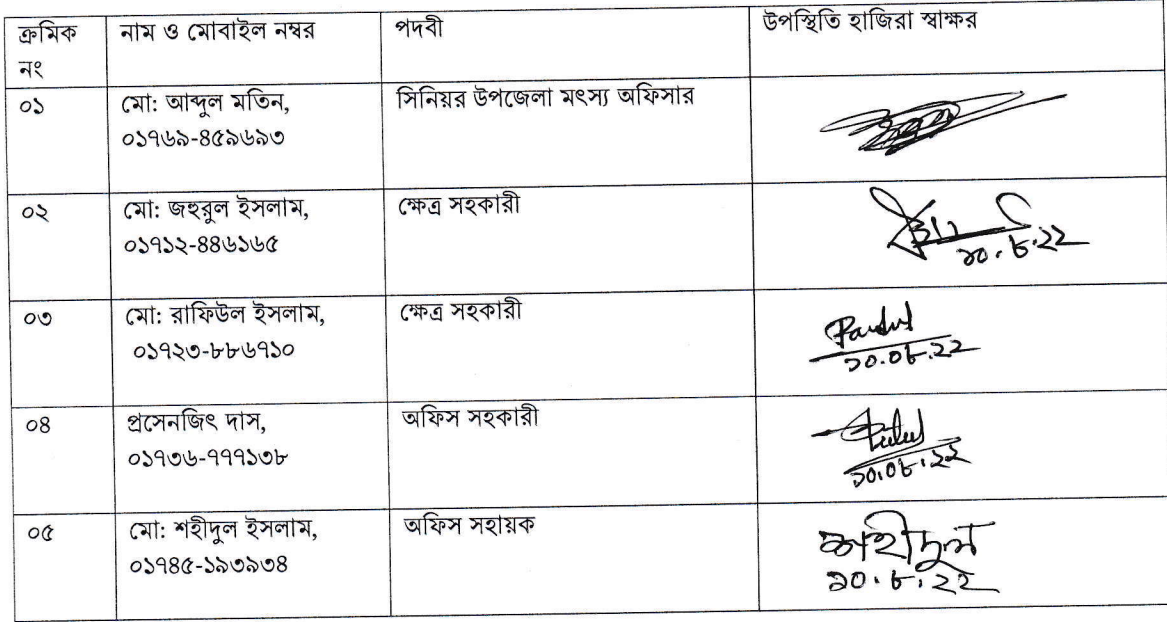 ক্রমিক নং
নাম ও মোবাইল নম্বর
পদবী
উপস্থিতি হাজিরা স্বাক্ষর
০১
মো: আব্দুল মতিন,
০১৭৬৯-৪৫৯৬৯৩
সিনিয়র উপজেলা মৎস্য অফিসার
০২
মো: জহুরুল ইসলাম,
০১৭১২-৪৪৬১৬৫
ক্ষেত্র সহকারী
১০.৮.২২
০৩
মো: রাফিউল ইসলাম,
০১৭২৩-৮৮৬৭১০
ক্ষেত্র সহকারী
১০.০৮.২২
০৪
প্রসেনজিৎ দাস,
০১৭৩৬-৭৭৭১৩৮
অফিস সহকারী
১০.০৮.২২
০৫
মো: শহীদুল ইসলাম,
০১৭৪৫-১৯৩৯৩৪
অফিস সহায়ক
শহীদুল
১০.৮.২২